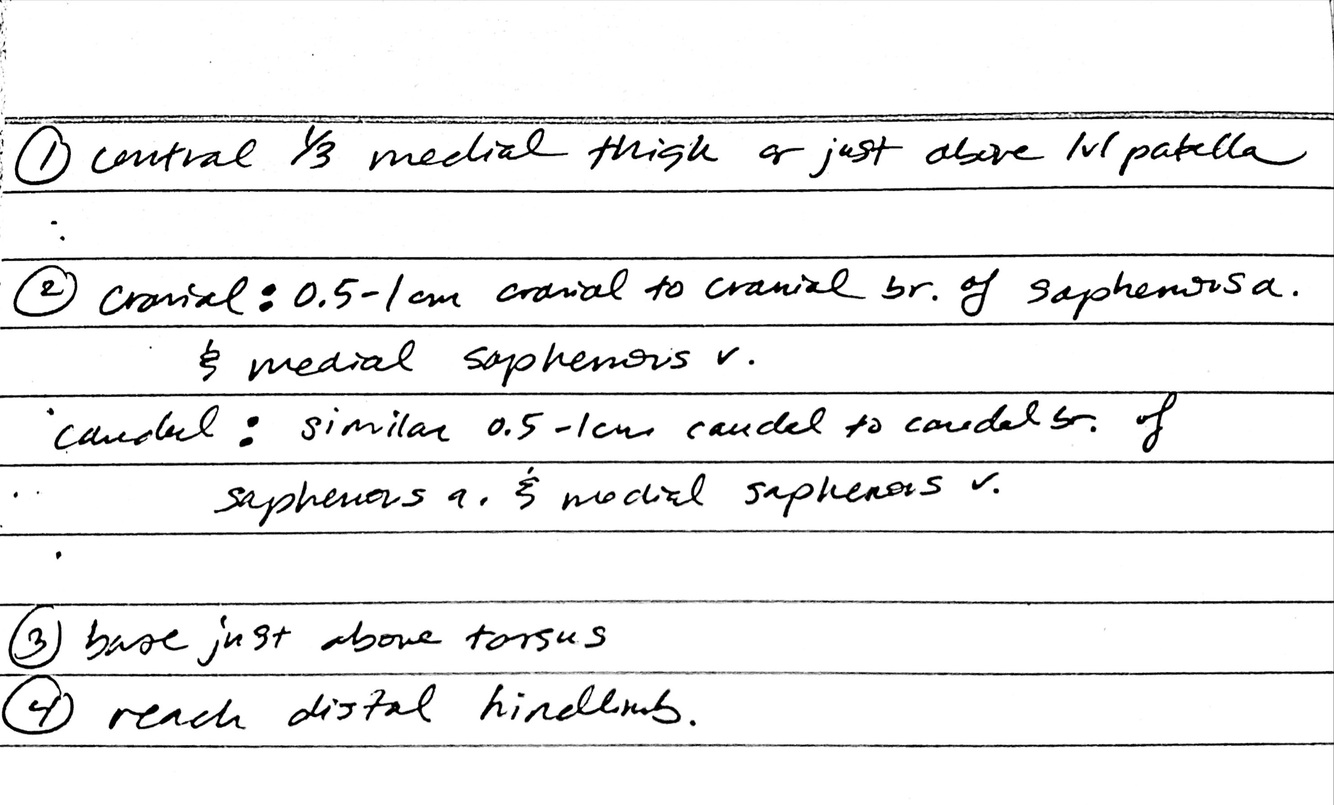 ① central 1/3 medial thigh or just above lvl patella
② cranial: 0.5-1 cm cranial to cranial br. of saphenous a.
& medial saphenous v.
caudal: similar 0.5-1cm caudal to caudal br. of
saphenous a. & medial saphenous v.
③ base just above tarsus
④ reach distal hindlimb.